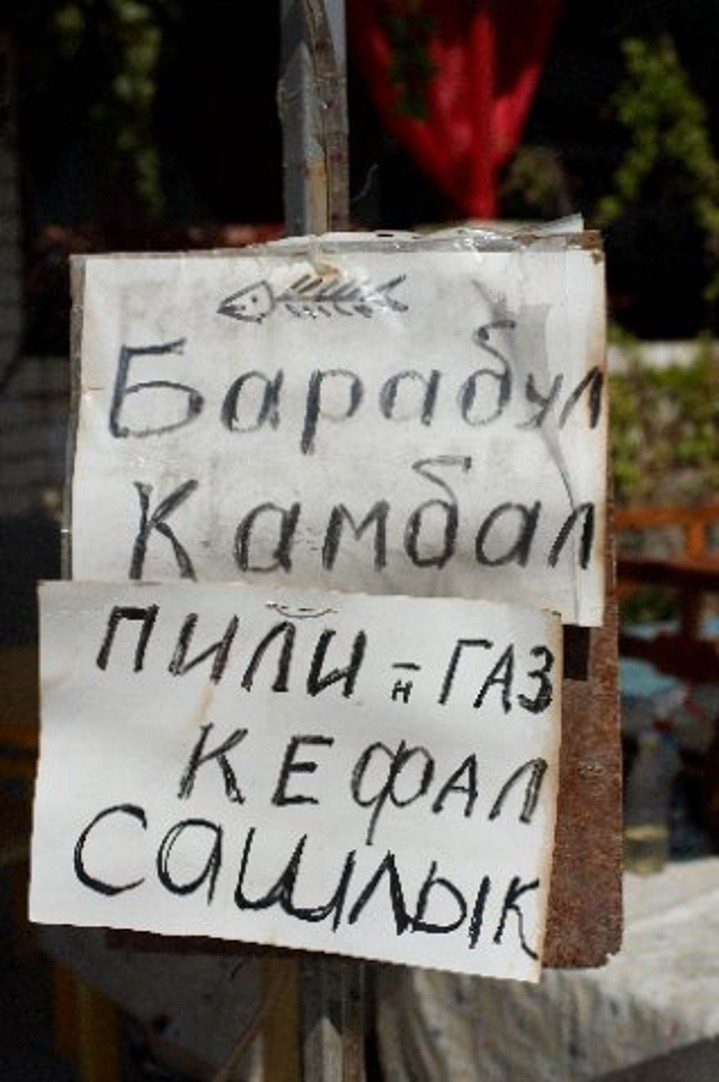 Барабул
Камбал
ПИЛИНГАЗ
КЕФАЛ
САШЛЫК